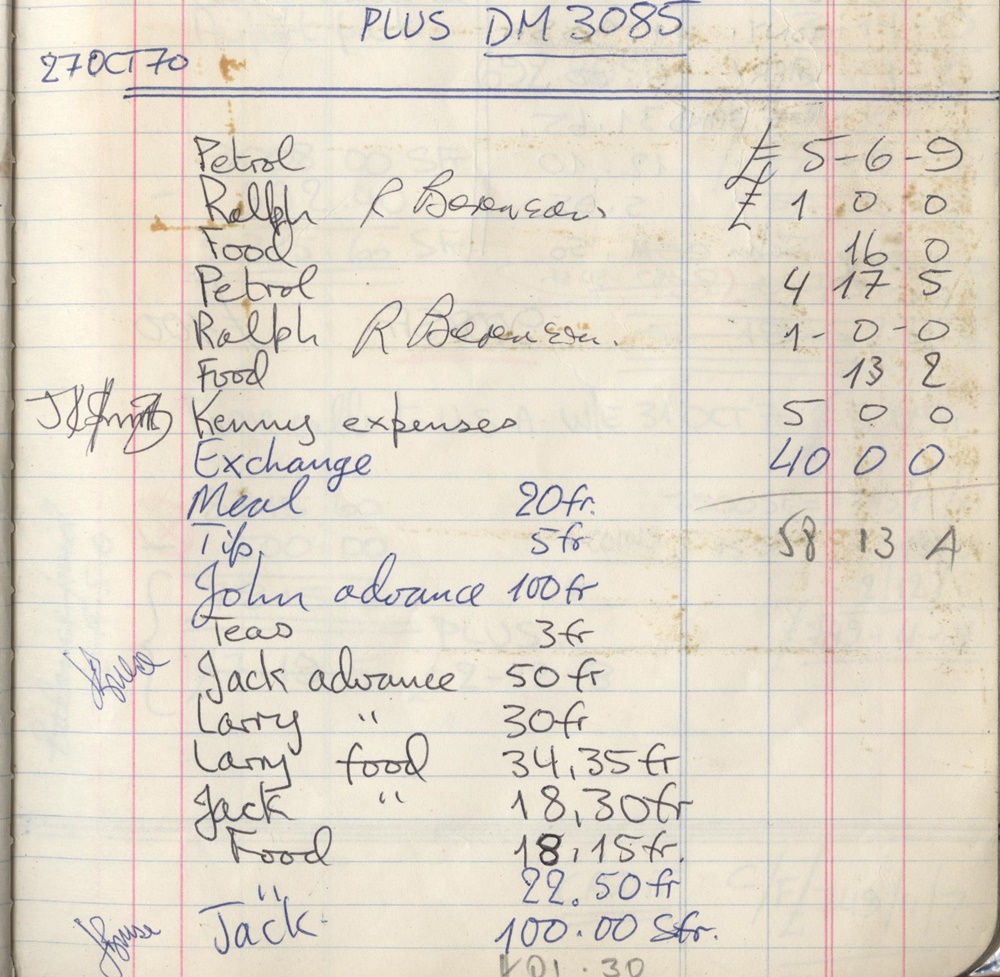 PLUS DM 3085
27OCT70
Petrol £ 5-6-9
Ralph R Berenson. £ 1 0 0
Food 16 0
Petrol 4 17 5
Ralph R Berenson. 1-0-0
Food 13 2
Kenny expenses 5 0 0
Exchange 40 0 0
Meal 20fr.
Tip 5fr 58 13 4
John advance 100fr
Teas 3fr
Jack advance 50fr
Larry " 30fr
Larry food 34,35fr
Jack " 18,30fr
Food 18,15fr.
" 22.50fr
Jack. 100.00 Sfr.